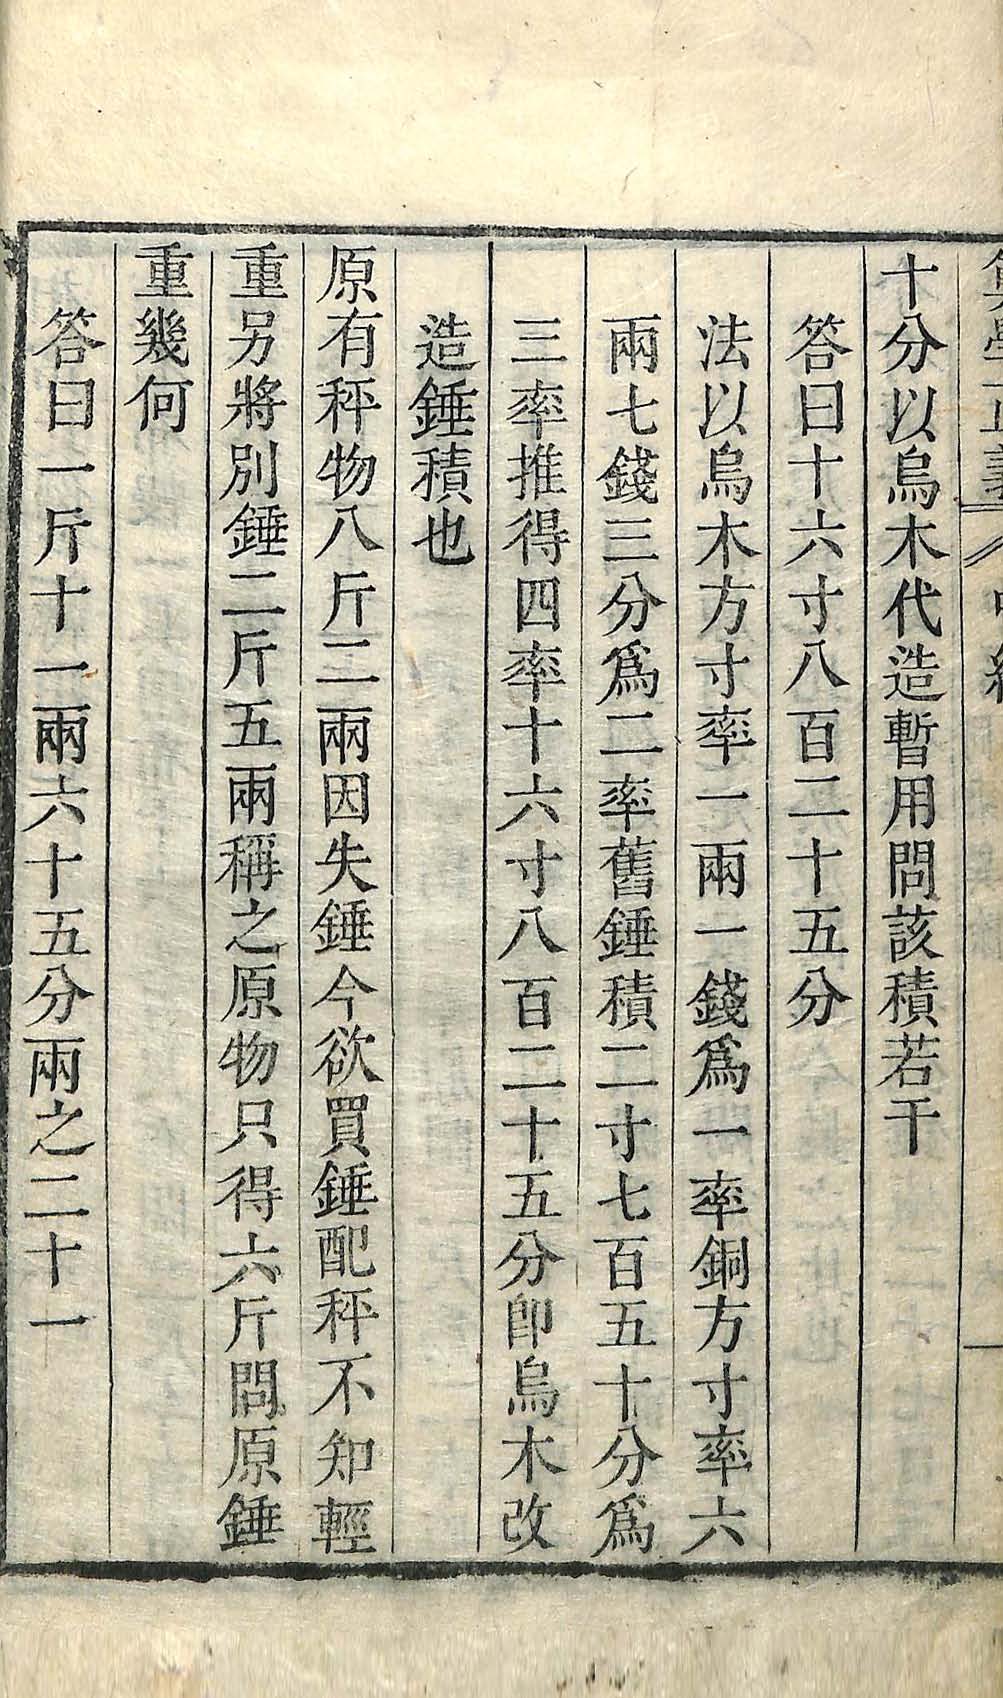 十分以烏木代造暫用問該積若干
答曰十六寸八百二十五分
法以烏木方寸率一兩一錢爲一率銅方寸率六
兩七錢三分爲二率舊錘積二寸七百五十分爲
三率推得四率十六寸八百二十五分卽烏木改
造錘積也
原有秤物八斤二兩因失錘今欲買錘配秤不知輕
重另將別錘二斤五兩稱之原物只得六斤問原錘
重幾何
答曰一斤十一兩六十五分兩之二十一